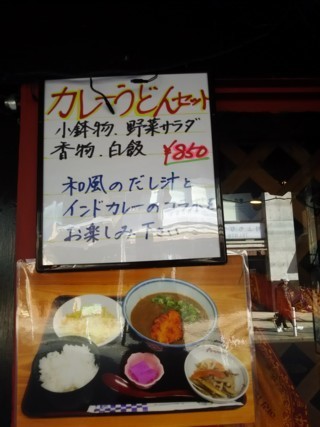 カレーうどんセット
小鉢物、野菜サラダ
香物、白飯 ¥850
和風のだし汁と
インドカレーの
お楽しみ下さい